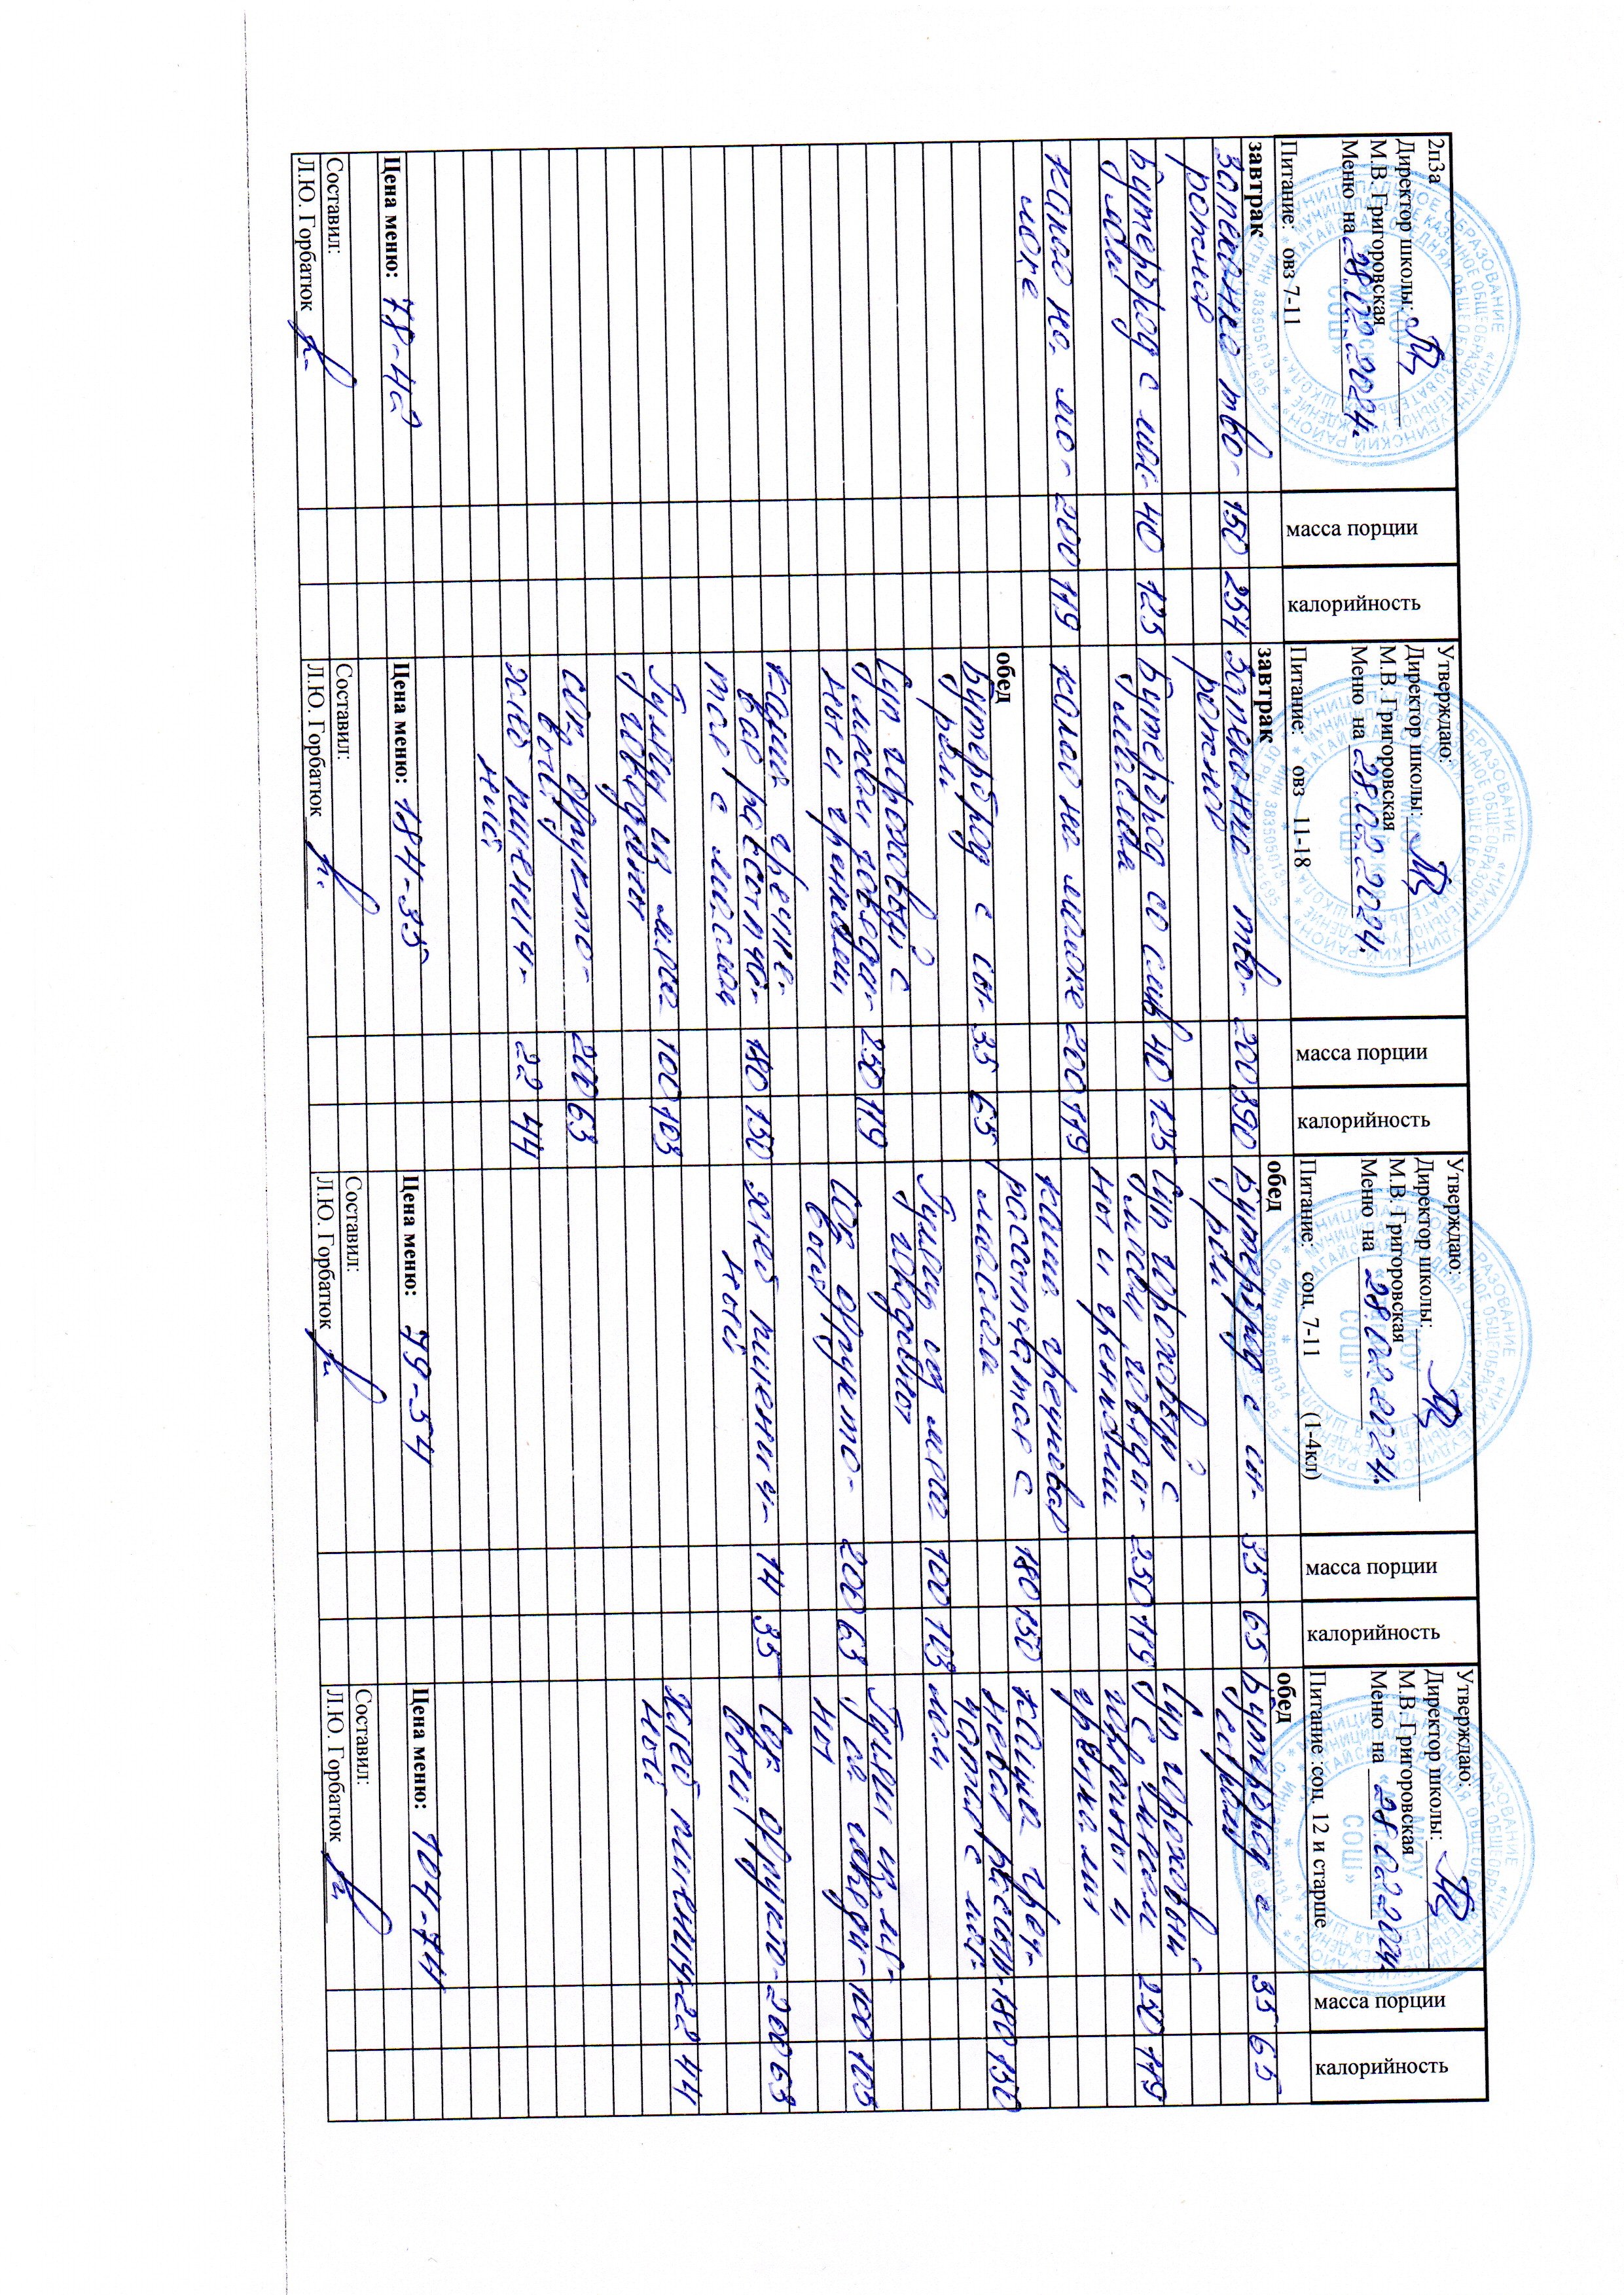 2п3а
Директор школы:
М.В. Григоровская
Меню на 28.02.2024.
Питание: овз 7-11
масса порции
калорийность
завтрак
Запеканка тво- 150 254
рожная
Бутерброд с мас- 40 125
лом
какао на мо- 200 119
локе
Цена меню: 78-42
Составил:
Л.Ю. Горбатюк
Утверждаю:
Директор школы:
М.В. Григоровская
Меню на 28.02.2024.
Питание: овз 11-18
масса порции
калорийность
завтрак
Запеканка тво- 200 390
рожная
Бутерброд со слив 40 125
маслом
какао на молоке 200 119
обед
Бутерброд с сы- 35 65
ром
Суп гороховый с
мясом говяди- 250 119
ны и гренками
каша гречне-
вая рассыпча- 180 150
тая с маслом
Гуляш из мяса 100 103
говядины
Сок фрукто- 200 63
вый
хлеб пшенич- 22 44
ный
Цена меню: 184-35
Составил:
Л.Ю. Горбатюк
Утверждаю:
Директор школы:
М.В. Григоровская
Меню на 28.02.2024.
Питание: соц. 7-11 (1-4кл)
масса порции
калорийность
обед
Бутерброд с сы- 35 65
ром
Суп гороховый с
мясом говяди- 250 119
ны и гренками
каша гречневая
рассыпчатая с 180 150
маслом
Гуляш из мяса 100 103
говядины
Сок фрукто- 200 63
вый
хлеб пшенич- 14 35
ный
Цена меню: 79-54
Составил:
Л.Ю. Горбатюк
Утверждаю:
Директор школы:
М.В. Григоровская
Меню на 28.02.2024.
Питание :соц. 12 и старше
масса порции
калорийность
обед
Бутерброд с 35 65
сыром
Суп гороховый
с мясом 250 119
говядины и
гренками
каша греч-
невая рассып- 180 150
чатая с мас-
лом
Гуляш из мя-
са говяди- 100 103
ны
Сок фрукто- 200 63
вый
Хлеб пшенич- 22 44
ный
Цена меню: 104-74
Составил:
Л.Ю. Горбатюк